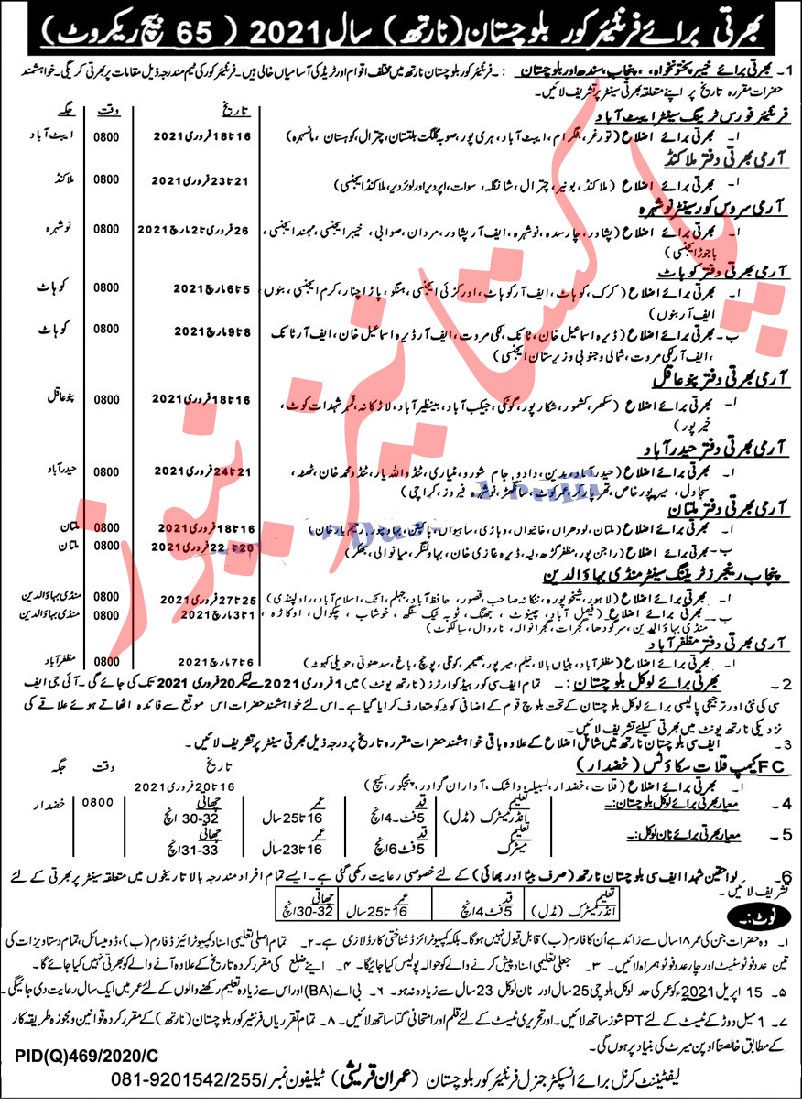 بھرتی برائے فرنٹیئر کور بلوچستان (نارتھ) سال 2021 (65 بیچ ریکروٹ)
1- بھرتی برائے خیبر پختونخواہ، پنجاب، سندھ اور بلوچستان :- فرنٹیئر کور بلوچستان نارتھ میں مختلف اقوام اور ٹریڈ کی آسامیاں خالی ہیں۔ فرنٹیئر کور کی ٹیم مندرجہ ذیل مقامات پر بھرتی کریگی۔ خواہشمند
حضرات مقررہ تاریخ پر اپنے متعلقہ بھرتی سینٹر پر تشریف لائیں۔
تاریخ وقت جگہ
فرنٹیئر فورس ٹریننگ سینٹر ایبٹ آباد
ا۔ بھرتی برائے اضلاع (تورغر، بٹگرام، ایبٹ آباد، ہری پور، صوبہ گلگت بلتستان، چترال، کوہستان، مانسہرہ) 16 تا 18 فروری 2021 0800 ایبٹ آباد
آرمی بھرتی دفتر ملاکنڈ
ا۔ بھرتی برائے اضلاع (ملاکنڈ، بونیر، چترال، شانگلہ، سوات، اپر دیر اور لوئر دیر، ملاکنڈ ایجنسی) 21 تا 23 فروری 2021 0800 ملاکنڈ
آرمی سروس کور سینٹر نوشہرہ
ا۔ بھرتی برائے اضلاع (پشاور، چارسدہ، نوشہرہ، ایف آر پشاور، مردان، صوابی، خیبر ایجنسی، مہمند ایجنسی، 26 فروری تا 2 مارچ 2021 0800 نوشہرہ
باجوڑ ایجنسی)
آرمی بھرتی دفتر کوہاٹ
ا۔ بھرتی برائے اضلاع (کرک، کوہاٹ، ایف آر کوہاٹ، اورکزئی ایجنسی، ہنگو، پاڑا چنار، کرم ایجنسی، بنوں، 5 تا 6 مارچ 2021 0800 کوہاٹ
ایف آر بنوں)
ب۔ بھرتی برائے اضلاع (ڈیرہ اسماعیل خان، ٹانک، لکی مروت، ایف آر ڈیرہ اسماعیل خان، ایف آر ٹانک 8 تا 9 مارچ 2021 0800 کوہاٹ
، ایف آر لکی مروت، شمالی و جنوبی وزیرستان ایجنسی)
آرمی بھرتی دفتر پنو عاقل
ا۔ بھرتی برائے اضلاع (سکھر، کشمور، شکار پور، گھوٹکی، جیکب آباد، بینظیر آباد، لاڑکانہ، قمبر شہدادکوٹ، 16 تا 18 فروری 2021 0800 پنو عاقل
خیر پور)
آرمی بھرتی دفتر حیدر آباد
ا۔ بھرتی برائے اضلاع (حیدر آباد، بدین، دادو، جام شورو، مٹیاری، ٹنڈو اللہ یار، ٹنڈو محمد خان، ٹھٹہ، 21 تا 24 فروری 2021 0800 حیدر آباد
سجاول، میر پور خاص، تھر پارکر، عمر کوٹ، سانگھڑ، نوشہرہ فیروز، کراچی)
آرمی بھرتی دفتر ملتان
ا۔ بھرتی برائے اضلاع (ملتان، لودھراں، خانیوال، وہاڑی، ساہیوال، پاکپتن، بہاولپور، رحیم یار خان) 16 تا 18 فروری 2021 0800 ملتان
ب۔ بھرتی برائے اضلاع (راجن پور، مظفر گڑھ، لیہ، ڈیرہ غازی خان، بہاولنگر، میانوالی، بھکر) 20 تا 22 فروری 2021 0800 ملتان
پنجاب رینجرز ٹریننگ سینٹر منڈی بہاؤالدین
ا۔ بھرتی برائے اضلاع (لاہور، شیخوپورہ، ننکانہ صاحب، قصور، حافظ آباد، جہلم، اٹک، اسلام آباد، راولپنڈی) 25 تا 27 فروری 2021 0800 منڈی بہاؤالدین
ب۔ بھرتی برائے اضلاع (فیصل آباد، چنیوٹ، جھنگ، ٹوبہ ٹیک سنگھ، خوشاب، چکوال، اوکاڑہ، 1 تا 3 مارچ 2021 0800 منڈی بہاؤالدین
منڈی بہاؤالدین، سرگودھا، گجرات، گجرانوالہ، نارووال، سیالکوٹ)
آرمی بھرتی دفتر مظفر آباد
ا۔ بھرتی برائے اضلاع (مظفر آباد، ہٹیاں بالا، نیلم، میر پور، بھمبر، کوٹلی، پونچھ، باغ، سدھنوتی، حویلی کہوٹہ) 6 تا 7 مارچ 2021 0800 مظفر آباد
2- بھرتی برائے لوکل بلوچستان :- تمام ایف سی کور ہیڈ کوارٹرز (نارتھ یونٹ) میں 1 فروری 2021 سے لیکر 20 فروری 2021 تک کی جائے گی۔ آئی جی ایف
سی کی نئی اور ترجیحی پالیسی برائے لوکل بلوچستان کے تحت بلوچ قوم کے اضافی کوٹہ کو متعارف کرایا گیا ہے۔ اس لئے خواہشمند حضرات اس موقع سے فائدہ اٹھاتے ہوئے علاقے کی
نزدیکی نارتھ یونٹ میں بھرتی کیلئے تشریف لائیں۔
3- ایف سی بلوچستان نارتھ میں شامل اضلاع کے علاوہ باقی خواہشمند حضرات مقررہ تاریخ پر درجہ ذیل بھرتی سینٹر پر تشریف لائیں۔
FC کیمپ قلات سکاؤٹس (خضدار) تاریخ وقت جگہ
ا۔ بھرتی برائے اضلاع (قلات، خضدار، لسبیلہ، واشک، آواران، گوادر، پنجگور، کیچ) 16 تا 20 فروری 2021 0800 خضدار
4- معیار بھرتی برائے لوکل بلوچستان:- تعلیم انڈر میٹرک (مڈل) قد 5 فٹ-4 انچ عمر 16 تا 25 سال چھاتی 30-32 انچ
5- معیار بھرتی برائے نان لوکل:- تعلیم میٹرک قد 5 فٹ 6 انچ عمر 16 تا 23 سال چھاتی 31-33 انچ
6- لواحقین شہدا ایف سی بلوچستان نارتھ (صرف بیٹا اور بھائی) کے لئے خصوصی رعایت رکھی گئی ہے۔ ایسے تمام افراد مندرجہ بالا تاریخوں میں متعلقہ سینٹر پر بھرتی کے لئے
تشریف لائیں۔
تعلیم انڈر میٹرک (مڈل) قد 5 فٹ 4 انچ عمر 16 تا 25 سال چھاتی 30-32 انچ
نوٹ:-
ا۔ وہ حضرات جن کی عمر ۱۸ سال سے زائد ہے اُن کا فارم (ب) قابل قبول نہیں ہوگا۔ بلکہ کمپیوٹرائزڈ شناختی کارڈ لازمی ہے۔ ۲۔ تمام اصلی تعلیمی اسناد کمپیوٹرائیزڈ فارم (ب)، ڈومیسائل، تمام دستاویزات کی
تین عدد فوٹوسٹیٹ اور چار عدد فوٹو ہمراہ لائیں۔ ۳۔ جعلی تعلیمی اسناد پیش کرنے والے کو حوالہ پولیس کیا جائیگا۔ ۴۔ اپنے ضلع کی مقرر کردہ تاریخ کے علاوہ آنے والے کو بھرتی نہیں کیا جائیگا۔
۵۔ 15 اپریل 2021 کو عمر کی حد لوکل بلوچی 25 سال اور نان لوکل 23 سال سے زیادہ نہ ہو۔ ۶۔ بی اے (BA) اور اس سے زیادہ تعلیم رکھنے والوں کے لئے عمر میں ایک سال رعایت دی جائیگی۔
۷۔ 1 میل دوڑ کے ٹیسٹ کے لئے PT شوز ساتھ لائیں۔ اور تحریری ٹیسٹ کے لئے قلم اور امتحانی گتا ساتھ لائیں۔ ۸۔ تمام تقرریاں فرنٹیر کور بلوچستان (نارتھ) کے مقرر کردہ قوانین و مجوزہ طریقہ کار
کے مطابق خالصتاً اوپن میرٹ کی بنیاد پر ہوں گی۔
PID(Q)469/2020/C
لیفٹیننٹ کرنل برائے انسپکٹر جنرل فرنٹیئر کور بلوچستان (عمران قریشی) ٹیلیفون نمبر 081-9201542/255/
پاکستانیز نیوز